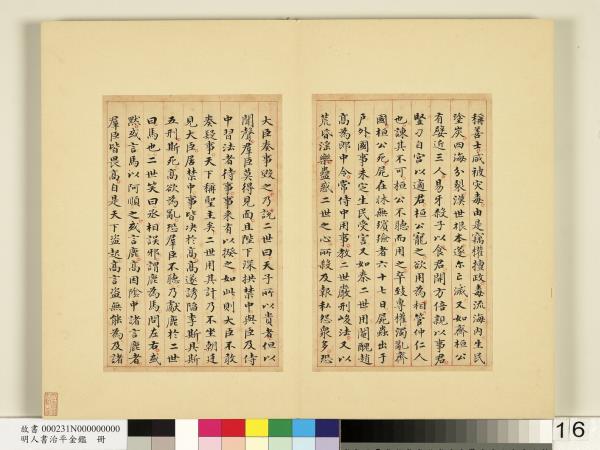 稱善士咸被災毒由是竊權擅政毒流海內生民
塗炭四海分裂漢世根本遂爾亡滅又如齊桓公
有嬖近三人易牙殺子以食君開方倍親以事君
豎刁自宮以適君桓公寵之欲用為相管仲仁人
也諫其不可桓公不聽而用之卒致專權濁亂齊
國桓公死屍在牀無殯殮者六十七日屍蟲出于
戶外國事未定生民受害又如秦二世用閹醜趙
高為郎中令常侍中用事教二世嚴刑峻法又以
荒昏淫樂蠱惑二世之心所殺及報私怨眾多恐
大臣奏事毀之乃說二世曰天子所以貴者但以
聞聲羣臣莫得見面且陛下深拱禁中與臣及侍
中習法者待事事來有以揆之如此則大臣不敢
奏疑事天下稱聖主矣二世用其計乃不坐朝廷
見大臣居禁中事皆決於高高遂誘陷李斯具斯
五刑斯死高欲為亂恐羣臣不聽乃獻鹿於二世
曰馬也二世笑曰丞相誤邪謂鹿為馬問左右或
默或言馬以阿順之或言鹿高因陰中諸言鹿者
羣臣皆畏高自是天下盜起高言盜無能為及諸
故書 000231N000000000
明人書治平金鑑 冊
16